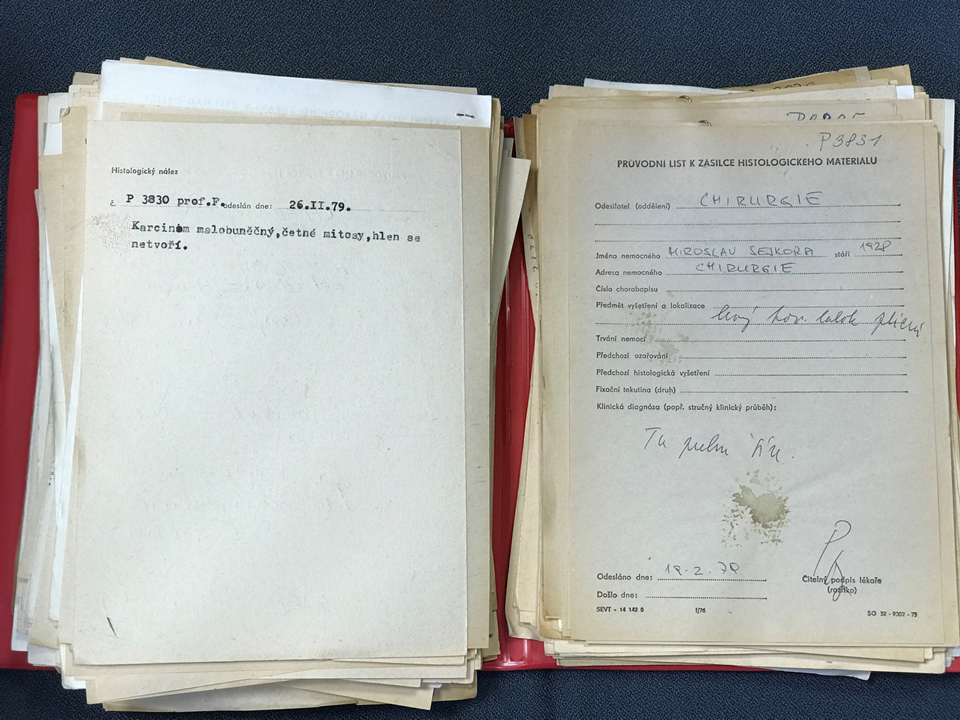 Histologický nález
č. P 3830 prof.F. odeslán dne: 26.II.79.
Karcinom malobuněčný,četné mitosy,hlen se
netvoří.
P3831
PRŮVODNÍ LIST K ZÁSILCE HISTOLOGICKÉHO MATERIÁLU
Odesílatel (oddělení) CHIRURGIE
Jméno nemocného MIROSLAV SEJKORA stáří 1928
Adresa nemocného CHIRURGIE
Číslo chorobopisu
Předmět vyšetření a lokalizace levý hor. lalok plicní
Trvání nemoci
Předchozí ozařování
Předchozí histologická vyšetření
Fixační tekutina (druh)
Klinická diagnóza (popř. stručný klinický průběh):
Tu pulm sin.
Odesláno dne:
Došlo dne:
Čitelný podpis lékaře
(razítko)
SEVT - 14 142 0 I/76 SG 32 - 9302 - 75